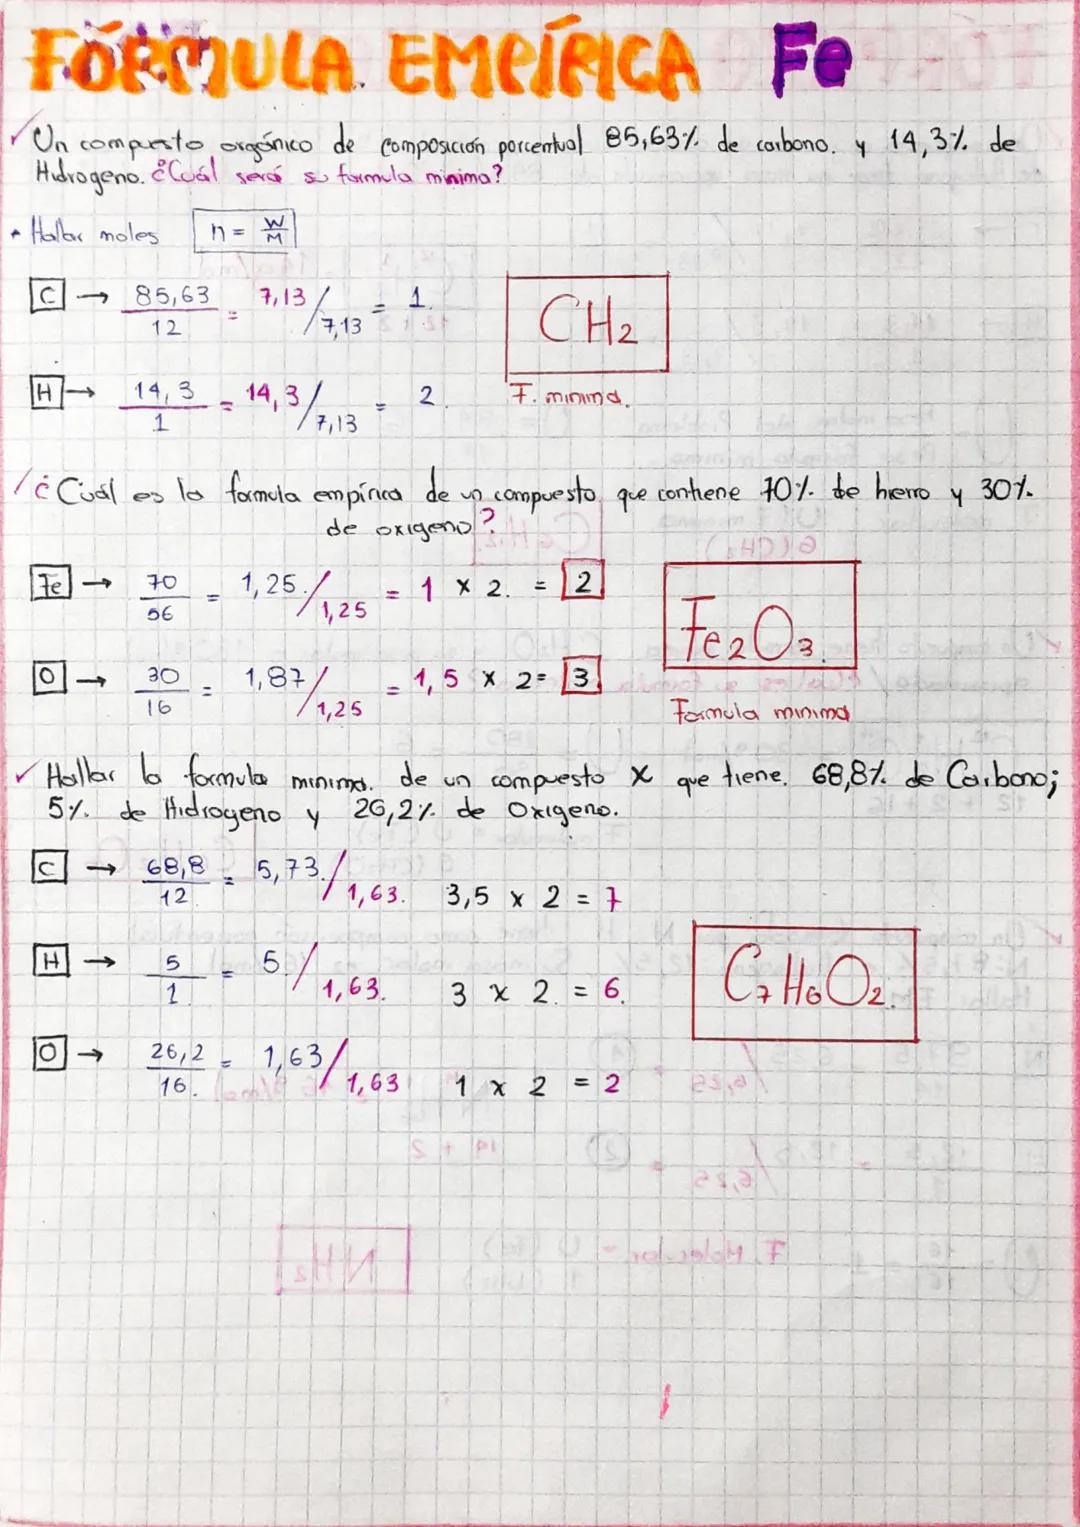 FÓRMULA EMPÍRICA Fe
✓ Un compuesto orgánico de composición porcentual 85,63% de carbono. y 14,3% de
Hidrogeno. ¿Cuál será su formula minima?
• Hallar moles n = W/M
C → 85,63/12 = 7,13/7,13 = 1.
CH₂
H → 14,3/1 = 14,3/7,13 = 2.
F. minima.
✓ ¿Cuál es la formula empírica de un compuesto que contiene 70% de hierro y 30%.
de oxigeno?
Fe → 70/56 = 1,25/1,25 = 1 x 2. = 2
Fe₂O₃.
O → 30/16 = 1,87/1,25 = 1,5 x 2 = 3.
Formula minima
✓ Hallar la formula minima. de un compuesto X que tiene. 68,8% de Carbono;
5%. de Hidrogeno y 26,2% de Oxigeno.
C → 68,8/12. = 5,73./1,63. 3,5 x 2 = 7
H → 5/1. = 5./1,63. 3 x 2. = 6.
C₇H₆O₂.
O → 26,2/16. = 1,63/1,63 1 x 2 = 2